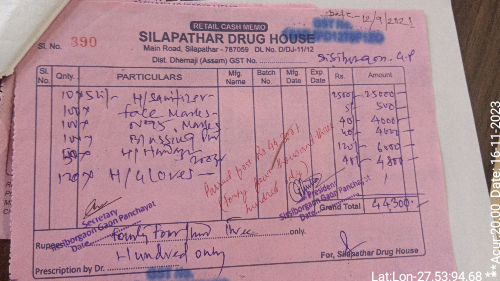 Date- 12/9/2021
RETAIL CASH MEMO
GST No.
Sl. No. 390
SILAPATHAR DRUG HOUSE
Main Road, Silapathar - 787059 DL No. D/DJ-11/12
Dist. Dhemaji (Assam) GST No.
Sisiborgaon G.P
Sl. No. Qnty. PARTICULARS Mfg. Name Batch No. Mfg Date Exp. Date Rs. Amount
H/Sanitizer 2500/- 25000-
100x Face Masks 5/- 500/-
100x N95 Masks 40/- 4000/-
100x 40/-
120/- 6000/-
120x H/Gloves 40/- 4800/-
Passed for Rs 44300/-
Forty four thousand three
hundred only
Secretary
Sisiborgaon Gaon Panchayat
Date
President
Sisiborgaon Gaon Panchayat
Date
Grand Total 44300/-
Rupees Fourty Four Three only.
Hundred only
Prescription by Dr.
For, Silapathar Drug House
GST No.
Lat:Lon-27.53:94.68 ** Acur:20.00 Date: 16-11-2023